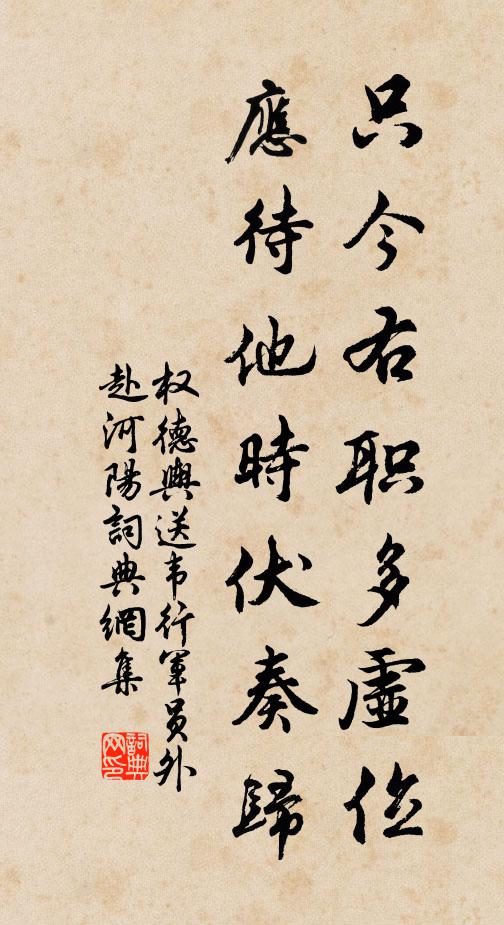 只今右职多虛位
應待他時伏奏歸
权德輿送韦行軍员外
赴河陽詞典網集
詞典
网印